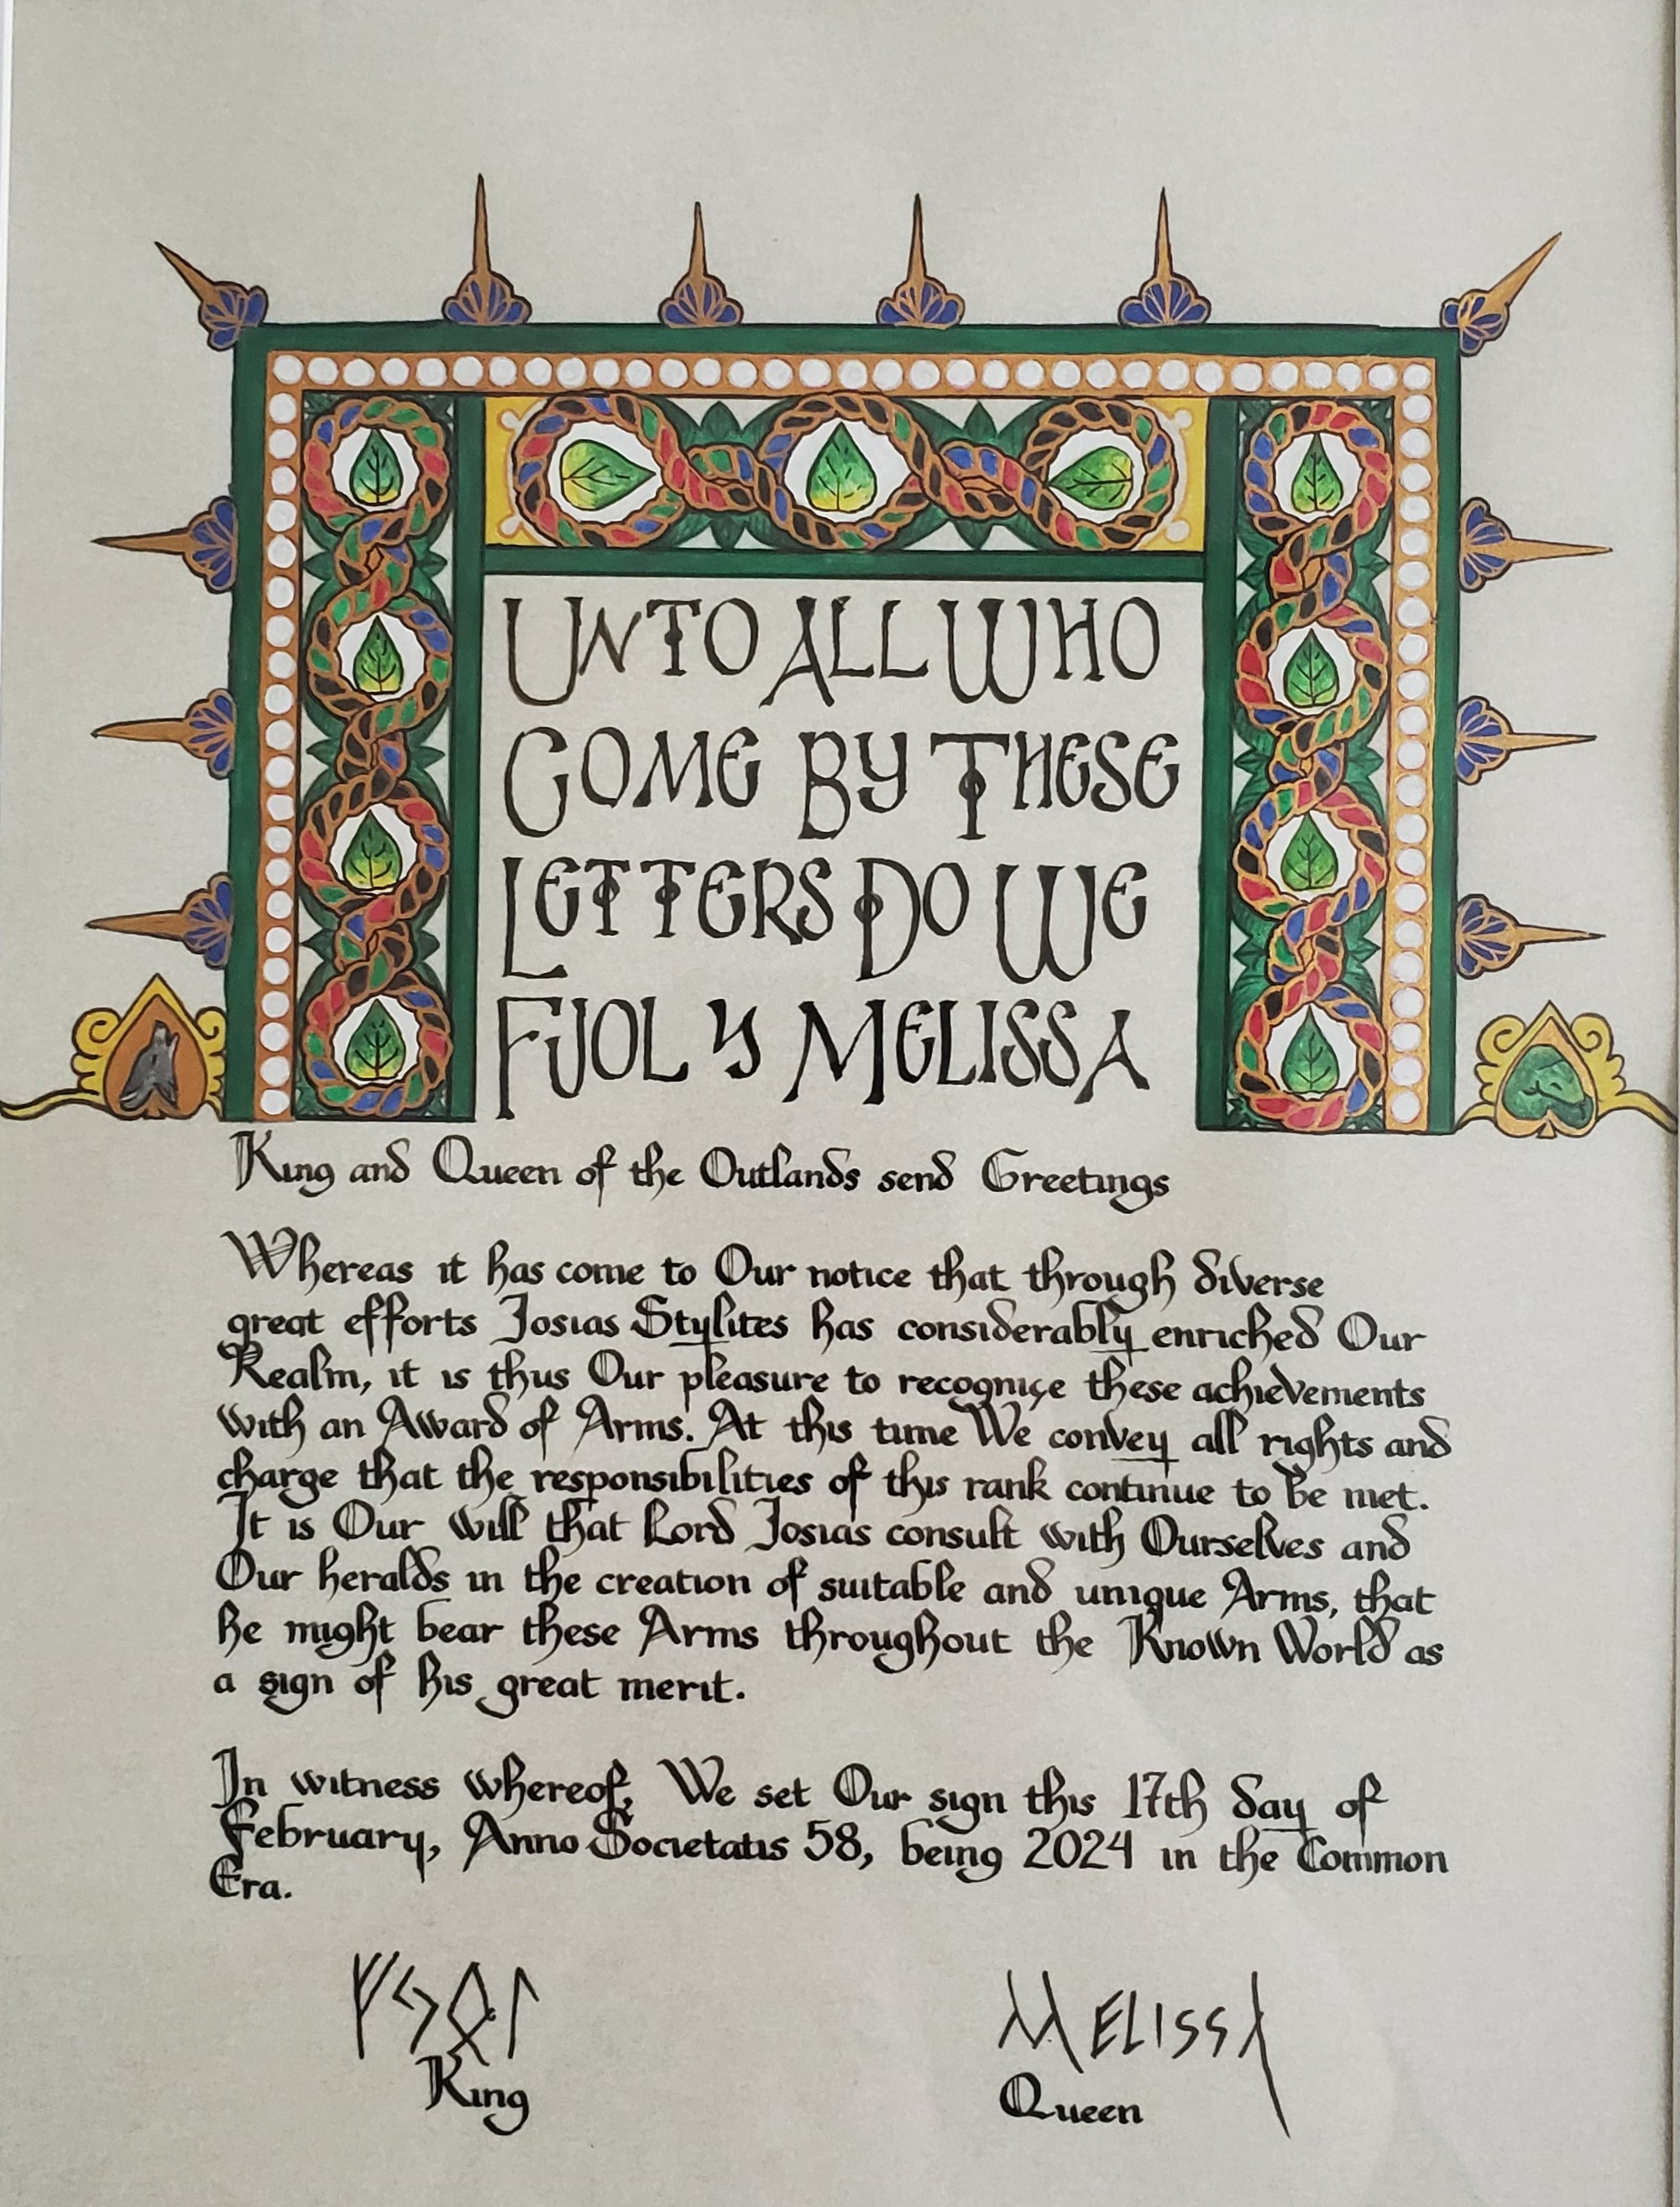 UNTO ALL WHO
COME BY THESE
LETTERS DO WE
FJOL Y MELISSA
King and Queen of the Outlands send Greetings
Whereas it has come to Our notice that through diverse
great efforts Josias Stylites has considerably enriched Our
Realm, it is thus Our pleasure to recognize these achievements
with an Award of Arms. At this time We convey all rights and
charge that the responsibilities of this rank continue to be met.
It is Our will that Lord Josias consult with Ourselves and
Our heralds in the creation of suitable and unique Arms, that
he might bear these Arms throughout the Known World as
a sign of his great merit.
In witness whereof, We set Our sign this 17th day of
February, Anno Societatis 58, being 2024 in the Common
Era.
ᚠᛃᛟᛚ MELISSA
King Queen